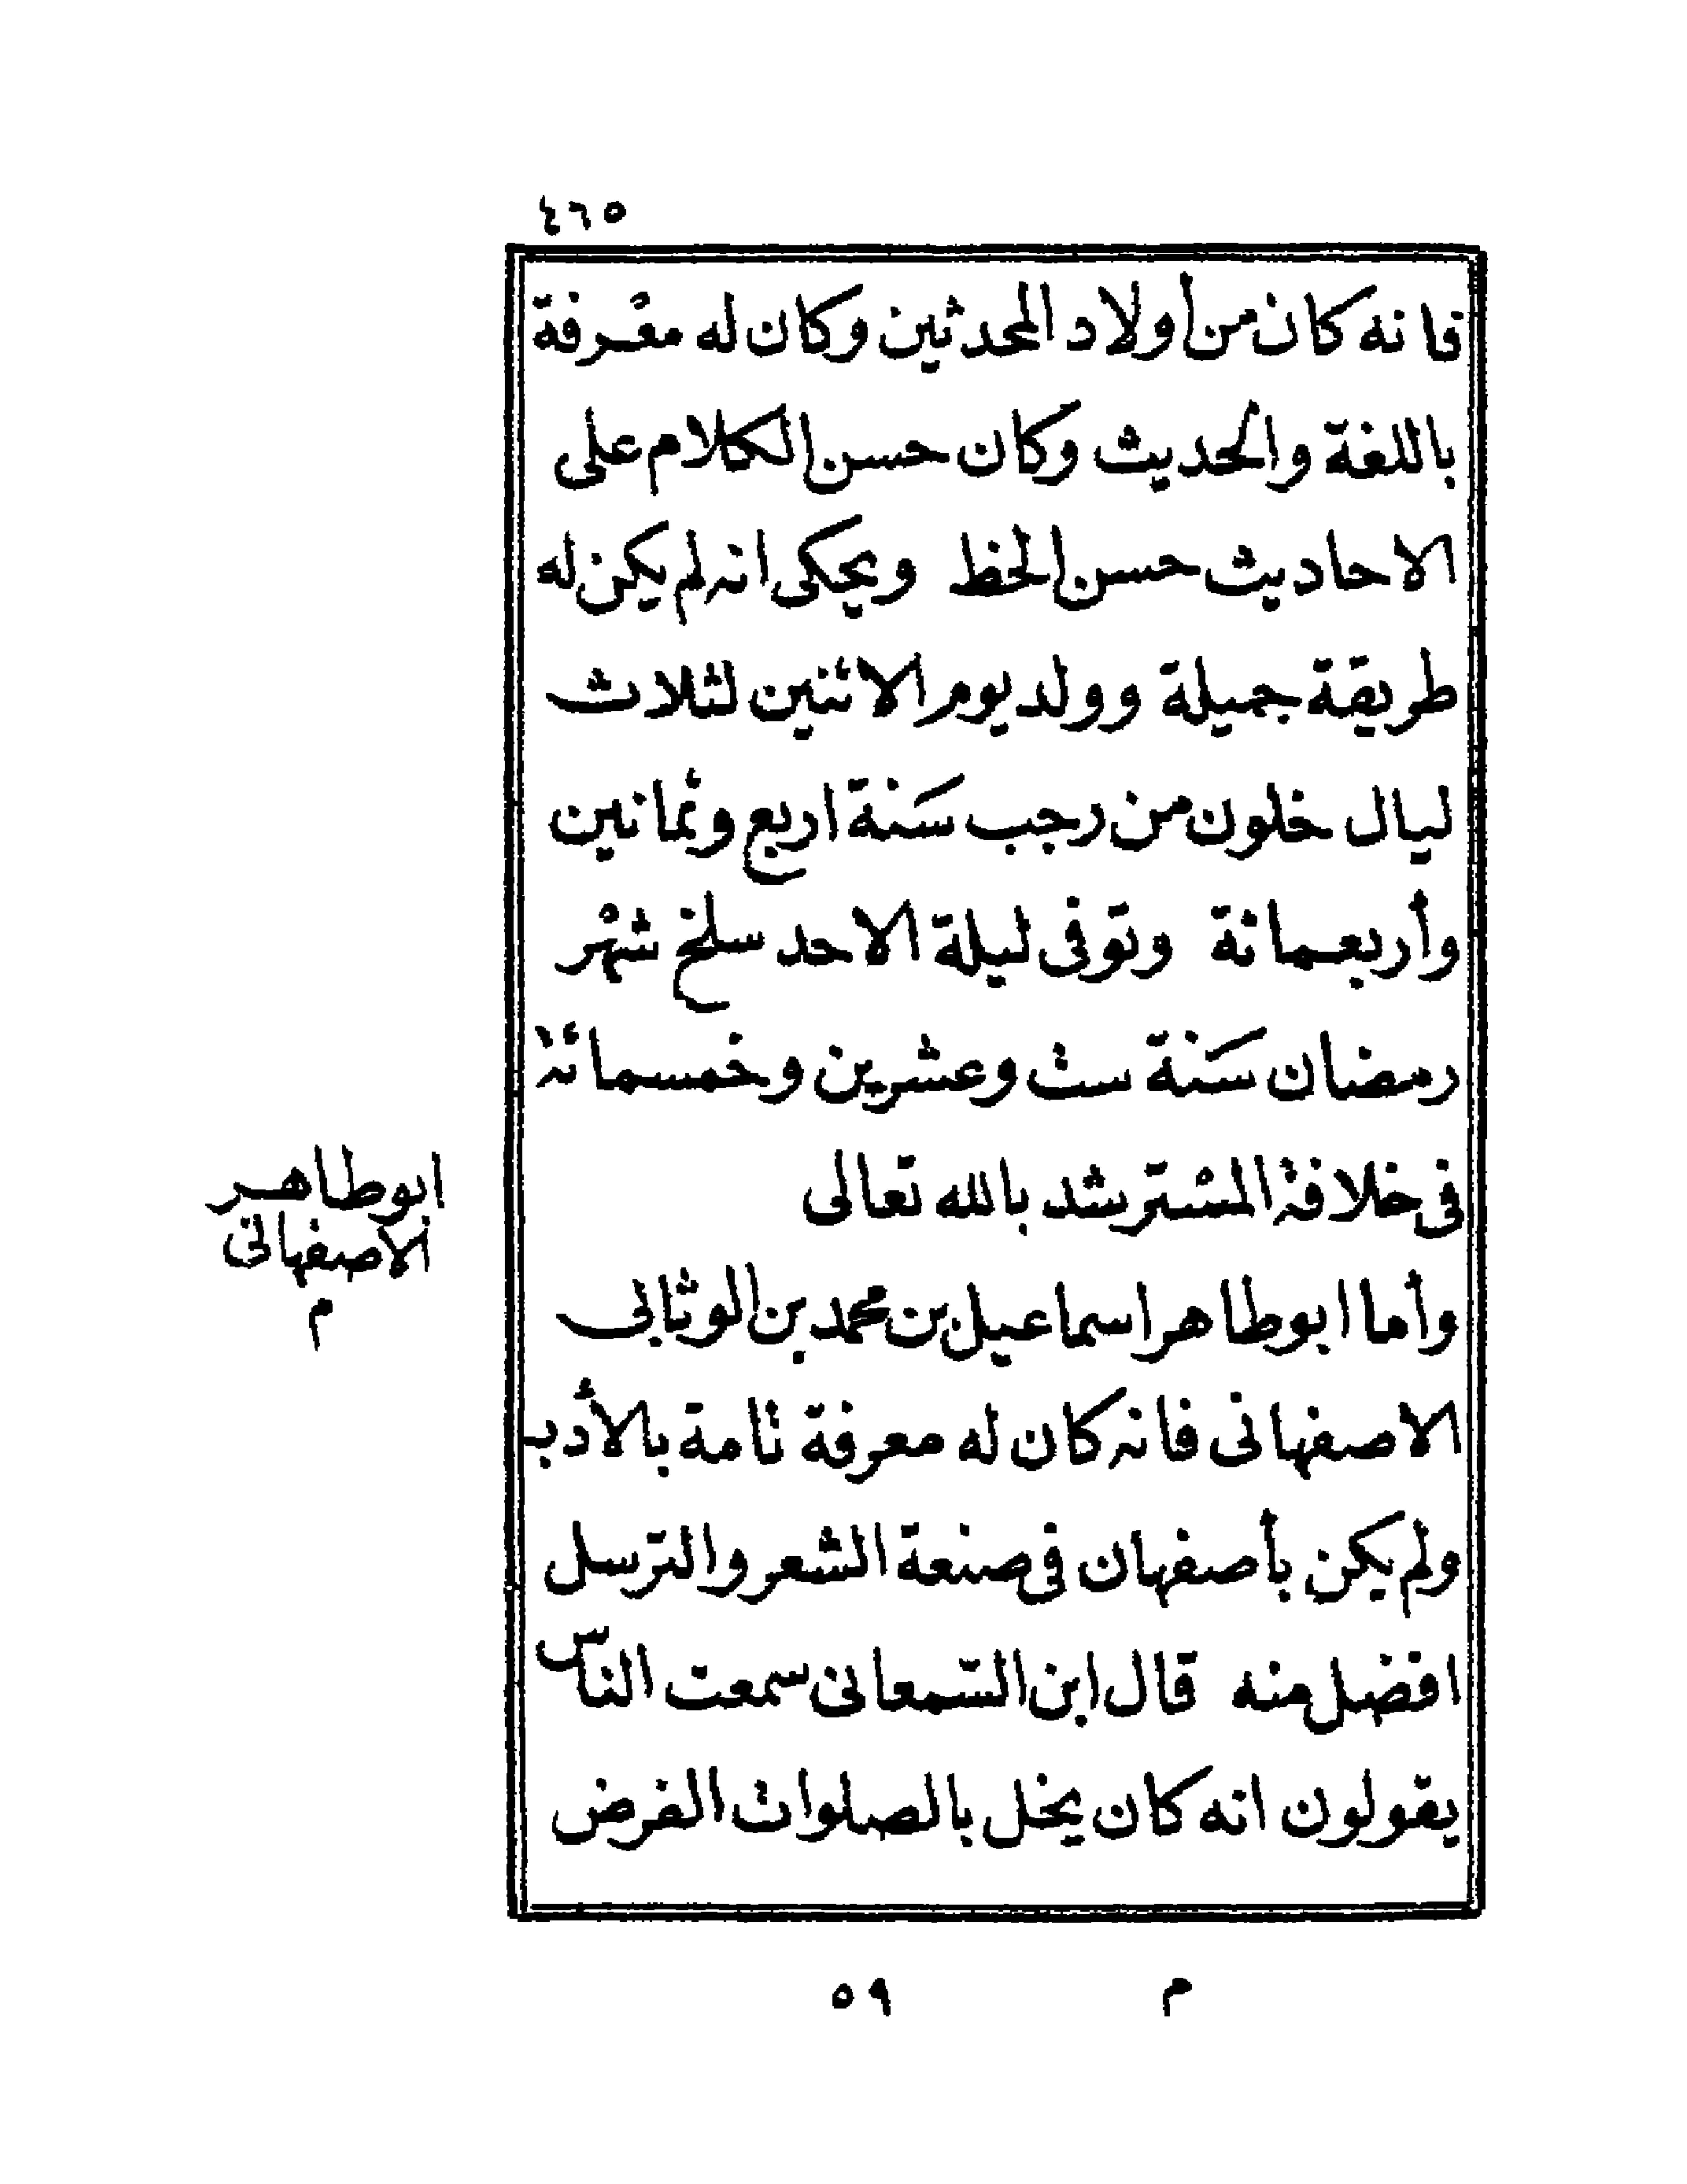 ٤٦٥
فانه كان من أولاد المحدثين وكان له معرفة
باللغة والحديث وكان حسن الكلام على
الاحاديث حسن الخظ ويحكى انه لم يكن له
طريقة جميلة وولد يوم الاثنين لثلاث
ليال خلون من رجب سَنة اربع وثمانين
وأربعمائة وتوفى ليلة الاحد سلخ شهر
رمضان سَنة ست وعشرين وخمسمائة
فى خلافة المسترشد بالله تعالى
ابوطاهر
الاصفهانى
م
وأما ابوطاهر اسماعيل بن محمد بن الوثابى
الاصفهانى فانه كان له معرفة تامة بالأدب
ولم يكن بأصفهان فى صنعة الشعر والترسل
افضل منه قال ابن السّمعانى سمعت الناس
يقولون انه كان يخل بالصلوات الفرض
م ٥٩